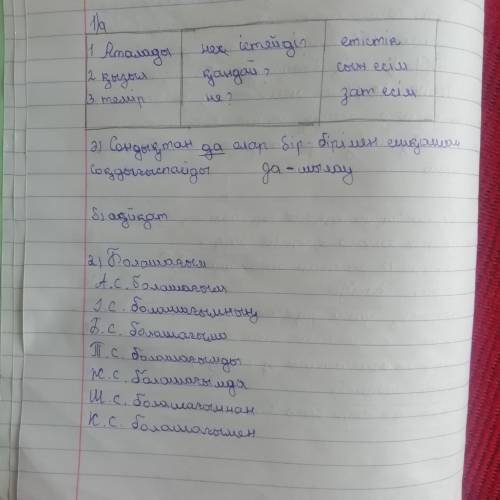 1/а
1 Аталады не істейді? етістік
2 қызыл қандай? сын есім
3 темір не? зат есім
ә) Сондықтан да олар бір-бірімен ешқашан
соқтығыспайды да - шылау
б) ақиқат
2) Болашағым
А.С. болашағым
І.С. болашағымның
Б.С. болашағыма
Т.С. болашағымды
Ж.С. болашағымда
Ш.С. болашағымнан
К.С. болашағыммен